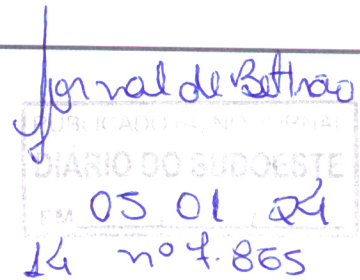 Jornal de Beltrão
PUBLICADO NO JORNAL
DIÁRIO DO SUDOESTE
EM 05 01 24
14 nº 7.865